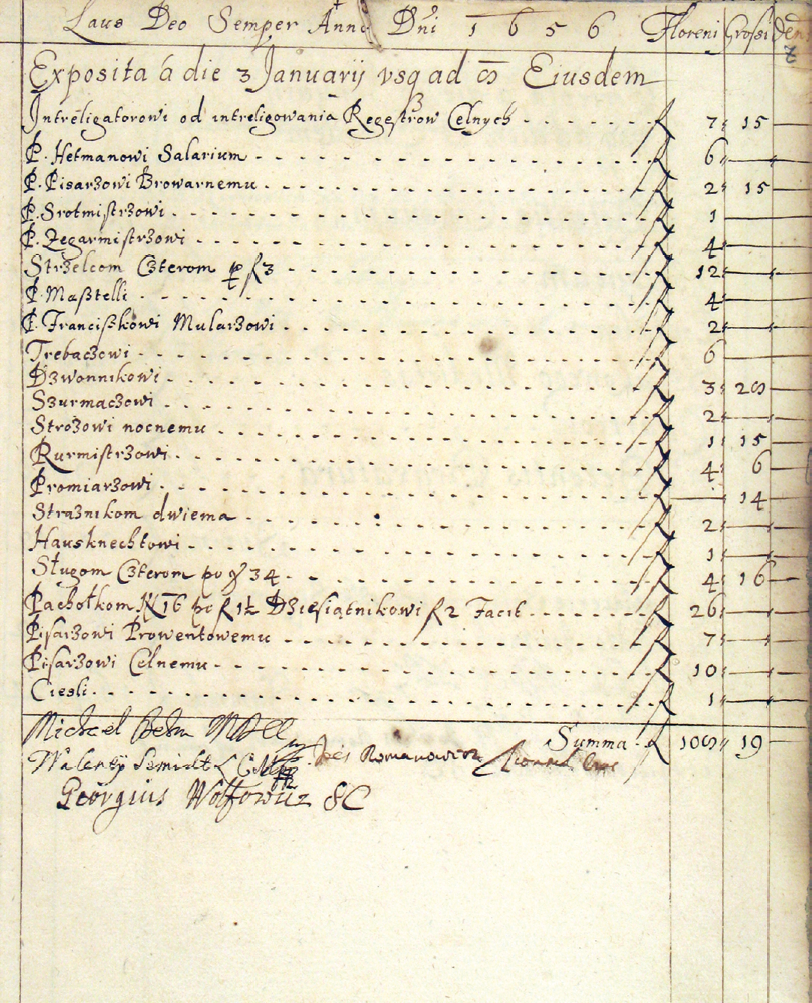 Laus Deo Semper Anno Dni 1656 Floreni Grossi Den
Exposita á die 3 Januarij usq ad Eiusdem
Intreligatorowi od intreligowania Regestrow Celnych f 7 15
P. Hetmanowi Salarium f 6
P. Pisarzowi Browarnemu f 2 15
P. Srotmistrzowi f 1
P. Zegarmistrzowi f 4
Strzelcom Czterom p f 3 f 12
P. Masztelli f 4
P. Franciszkowi Mularzowi f 2
Trebaczowi f 6
Dzwonnikowi f 3 20
Szurmaczowi f 2
Strozowi nocnemu f 1 15
Rurmistrzowi f 4 6
Promiarzowi f 14
Straznikom dwiema f 2
Hausknechtowi f 1
Slugom Czterom po g 34 f 4 16
Pachołkom N 16 po f 1½ Dziesiątnikowi f 2 Facit f 26
Pisarzowi Prowentowemu f 7
Pisarzowi Celnemu f 10
Ciesli f 1
Michael Behm
Summa f 108 19
Walenty Romanowicz
Georgius Wolfowicz SC